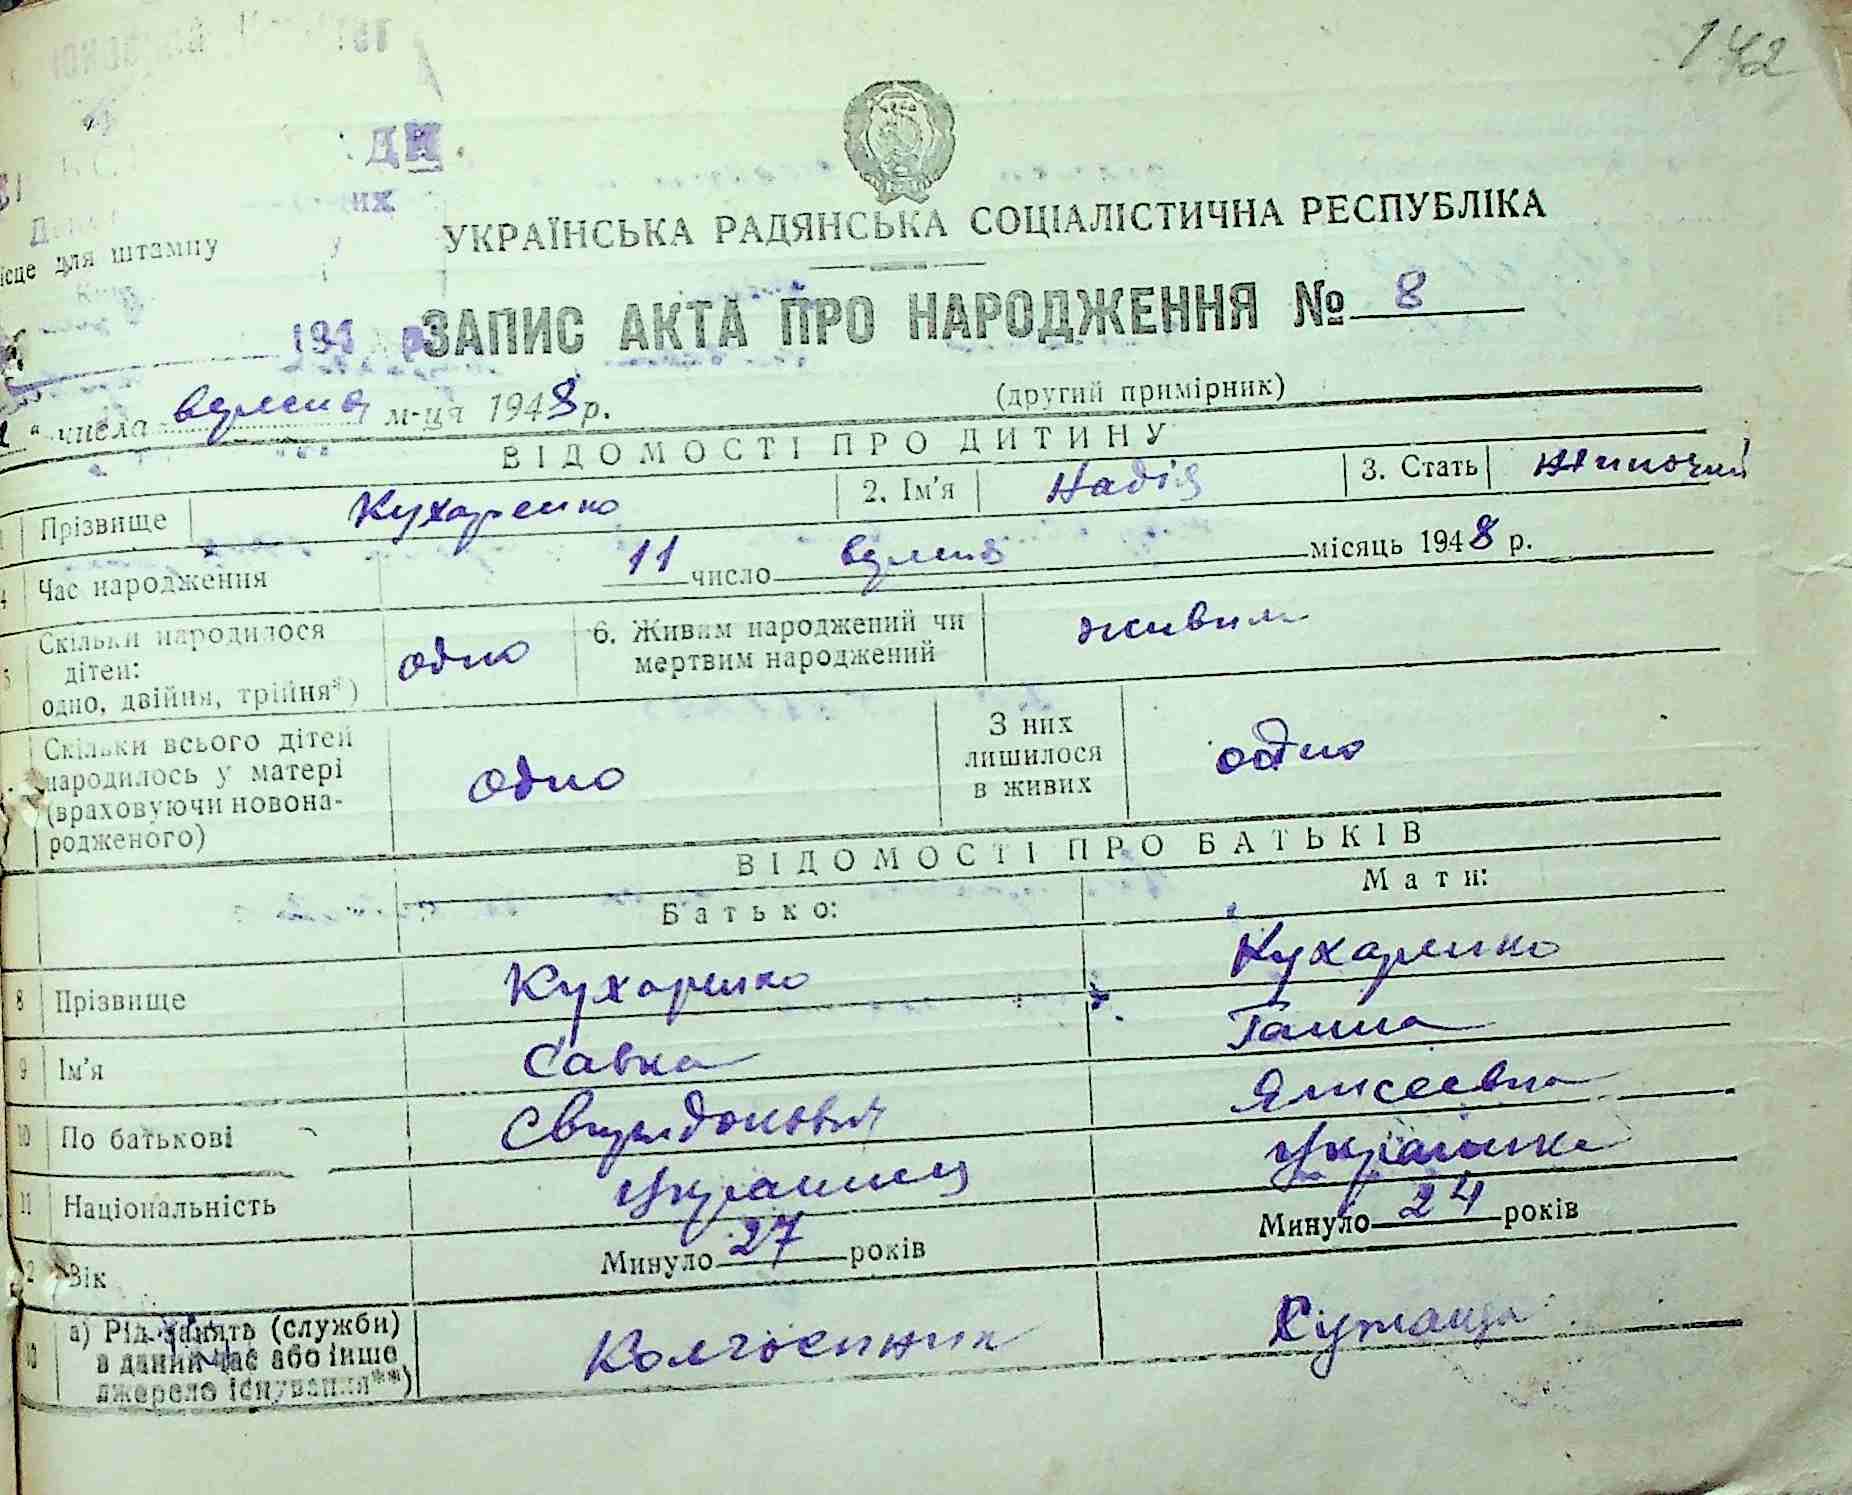 142
УКРАЇНСЬКА РАДЯНСЬКА СОЦІАЛІСТИЧНА РЕСПУБЛІКА
ісце для штампу
ЗАПИС АКТА ПРО НАРОДЖЕННЯ № 8
194
(другий примірник)
числа м-ця 1948 р.
ВІДОМОСТІ ПРО ДИТИНУ
Прізвище Кухаренко 2. Ім'я Надія 3. Стать жиночий
4 Час народження 11 число місяць 1948 р.
5 Скільки народилося дітей: одно, двійня, трійня*) одно 6. Живим народжений чи мертвим народжений живим
Скільки всього дітей народилось у матері (враховуючи новона-родженого) одно З них лишилося в живих одно
ВІДОМОСТІ ПРО БАТЬКІВ
Батько: Мати:
8 Прізвище Кухаренко Кухаренко
9 Ім'я Савка Ганна
10 По батькові
11 Національність українець українка
2 Вік Минуло 27 років Минуло 24 років
а) Рід занять (служби)
в даний час або інше
джерело існування**)
Колгоспник